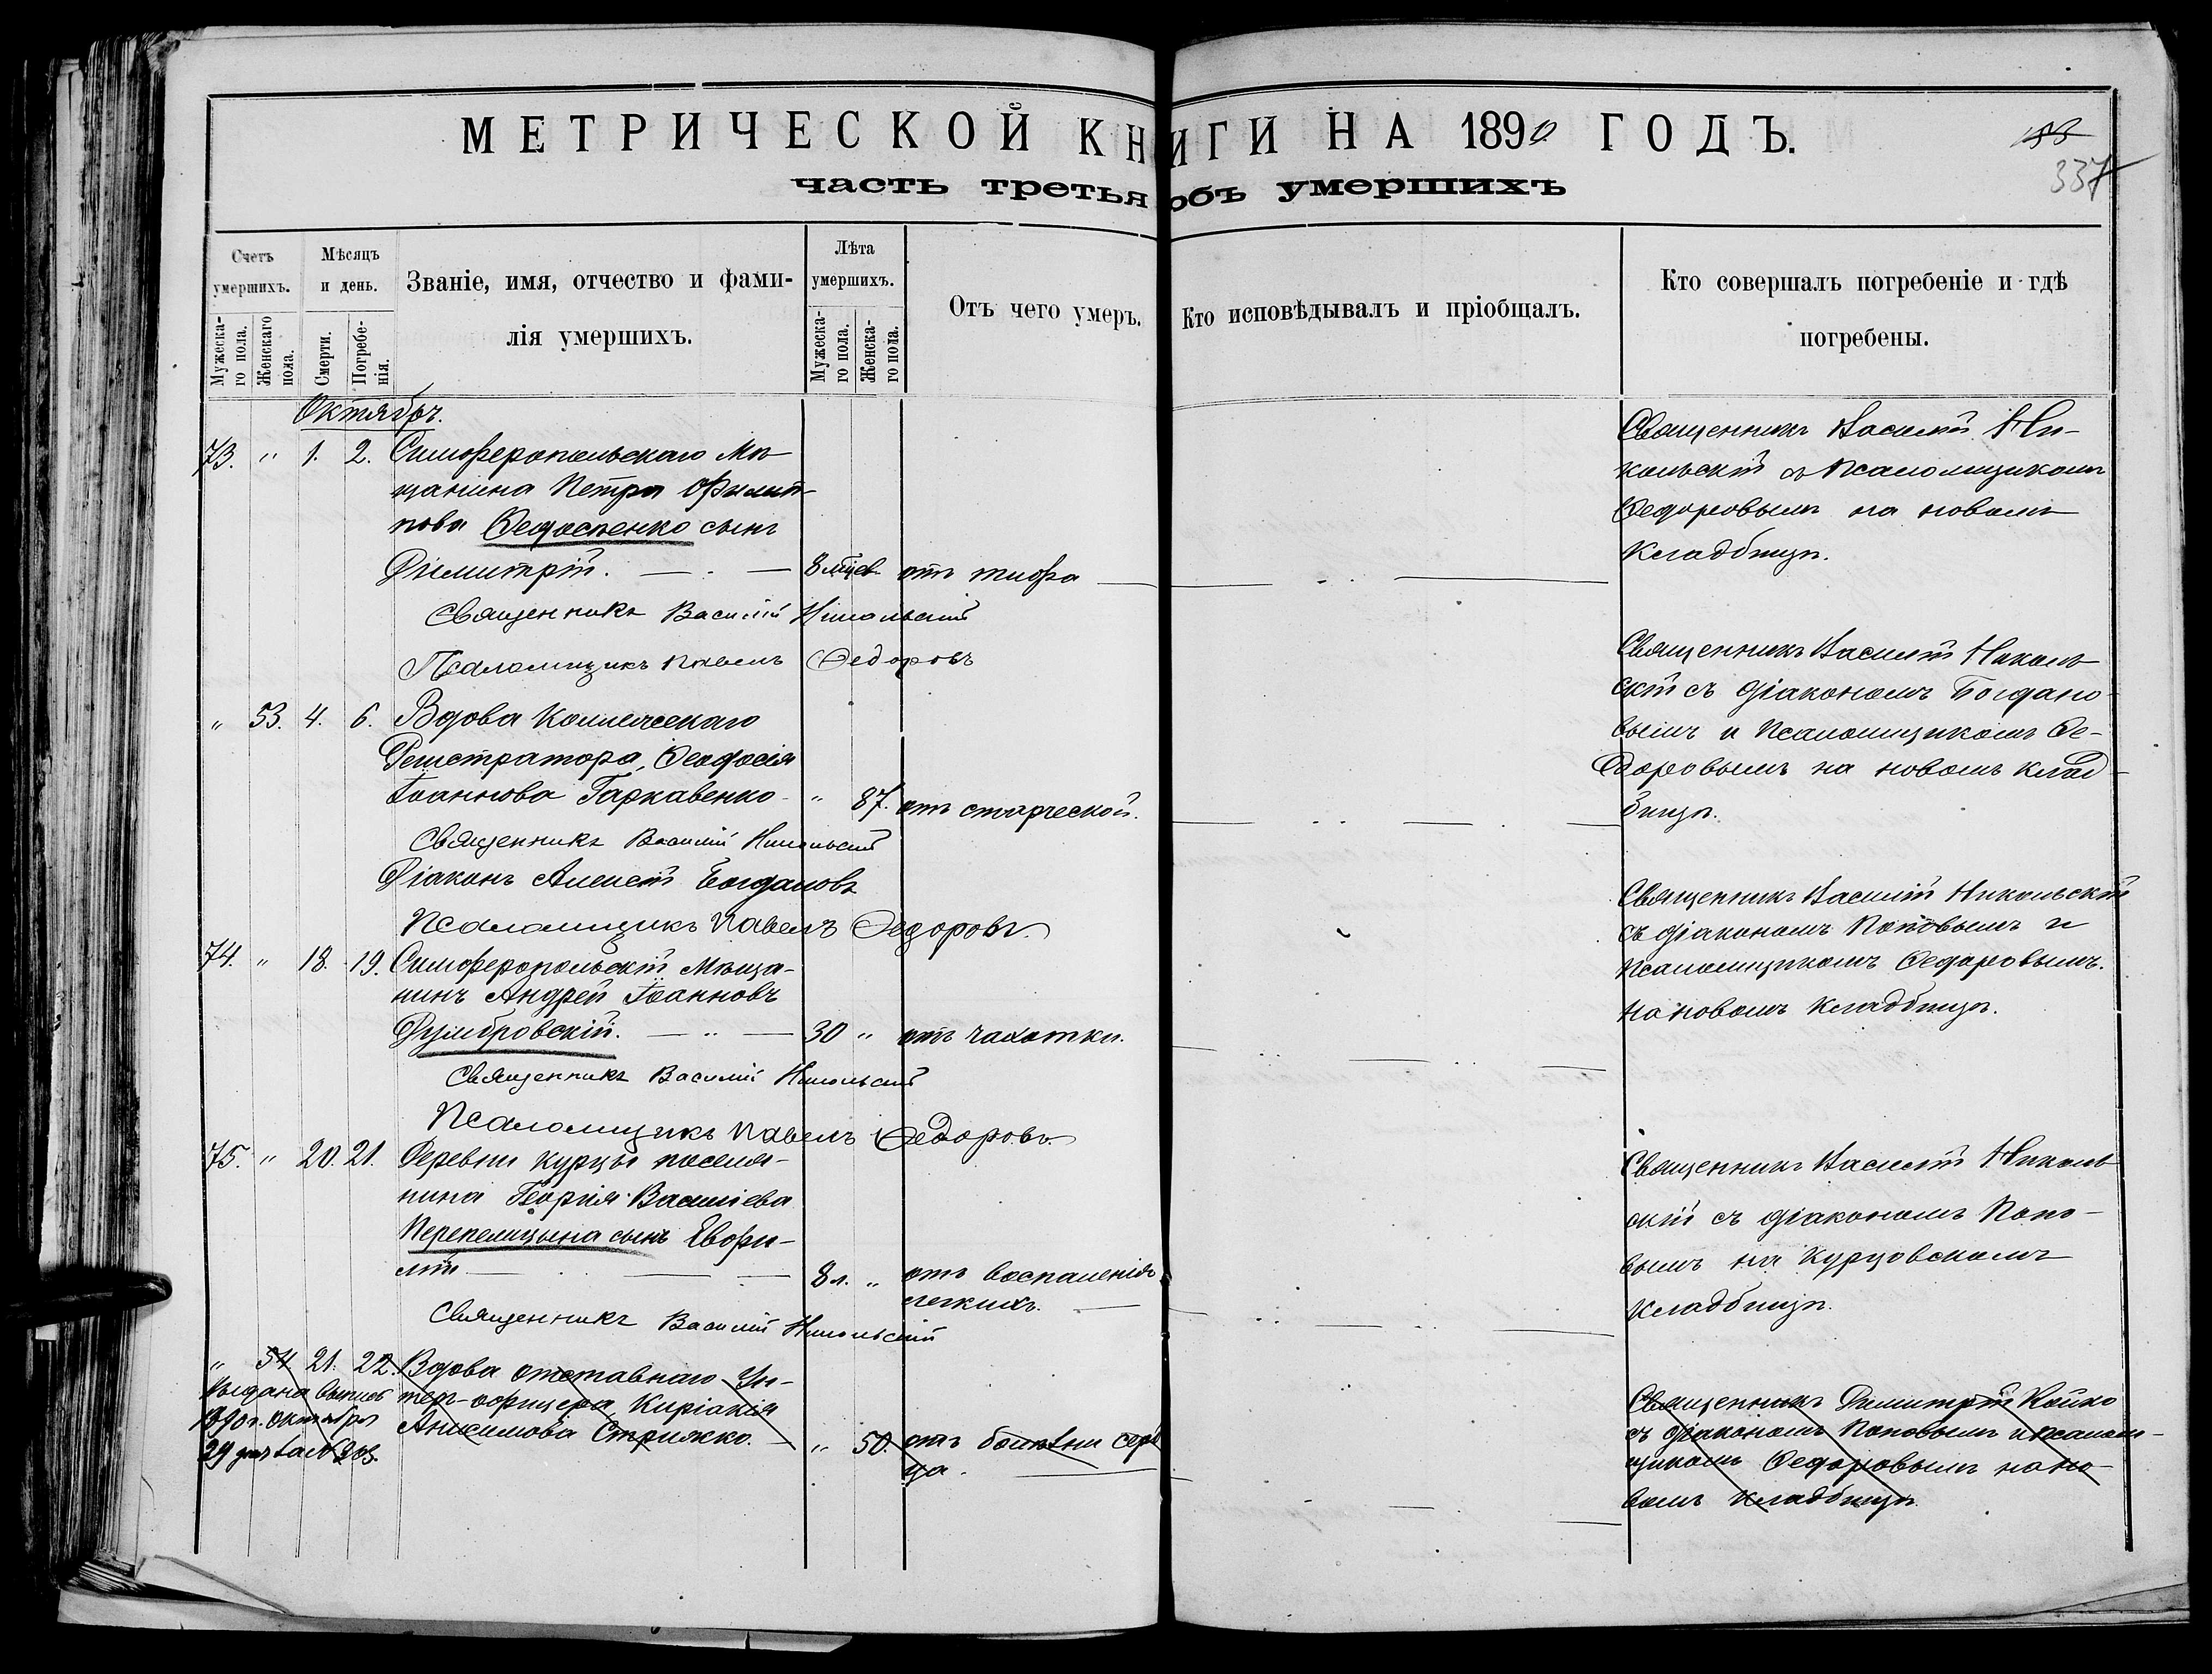 МЕТРИЧЕСКОЙ КНИГИ НА 1890 ГОДЪ.
часть третья объ умершихъ
337
Счетъ умершихъ.
Мужеска-
го пола.
Женскаго
пола.
Мѣсяцъ
и день.
Смерти.
Погребе-
нія.
Званіе, имя, отчество и фами-
лія умершихъ.
Лѣта
умершихъ.
Мужеска-
го пола.
Женска-
го пола.
Отъ чего умеръ.
Кто исповѣдывалъ и пріобщалъ.
Кто совершалъ погребеніе и гдѣ
погребены.
Октябрь.
73. " 1. 2. Симферопольскаго Мѣ-
щанина Петра Филип-
пова Ѳедосѣенко сынъ
Димитрій. 8 мѣцев. отъ тифа
Священникъ Василій Никольскій
Псаломщикъ Павелъ Ѳедоровъ
Священникъ Василій Ни-
кольскій съ Псаломщикомъ
Ѳедоровымъ на новомъ
Кладбищѣ.
" 53. 4. 6. Вдова Коллежскаго
Регистратора, Ѳеодосія
Іоаннова Гаркавенко " 87. отъ старческой.
Священникъ Василій Никольскій
Діаконъ Алексій Богдановъ
Псаломщикъ Павелъ Ѳедоровъ
Священникъ Василій Николь
скій съ діакономъ Богдано-
вымъ и Псаломщикомъ Ѳе-
доровымъ на новомъ клад-
бищѣ.
74. " 18. 19. Симферопольскій мѣща-
нинъ Андрей Іоанновъ
Думбровскій. 30 " отъ чахотки.
Священникъ Василій Никольскій
Псаломщикъ Павелъ Ѳедоровъ
Священникъ Василій Никольскій
съ діакономъ Поповымъ и
Псаломщикомъ Ѳедоровымъ.
на новомъ Кладбищѣ.
75. " 20. 21. Деревни Курцы поселя-
нина Георгія Василіева
Перепелицына сынъ Евфи-
мій 8 л. " отъ воспаленія
легкихъ.
Священникъ Василій Никольскій
Священникъ Василій Николь
скій съ діакономъ Попо-
вымъ на Курцовскомъ
Кладбищѣ.
" 54 21. 22. Вдова отставнаго Ун-
теръ-офицера, Киріакія
Анисимова Стрижко. " 50. отъ болѣзни серд
ца.
Выдана выпись
1890 г. Октября
29 дня за №
Священникъ Димитрій Койко
съ діакономъ Поповымъ и псалом-
щикомъ Ѳедоровымъ на но-
вомъ Кладбищѣ.